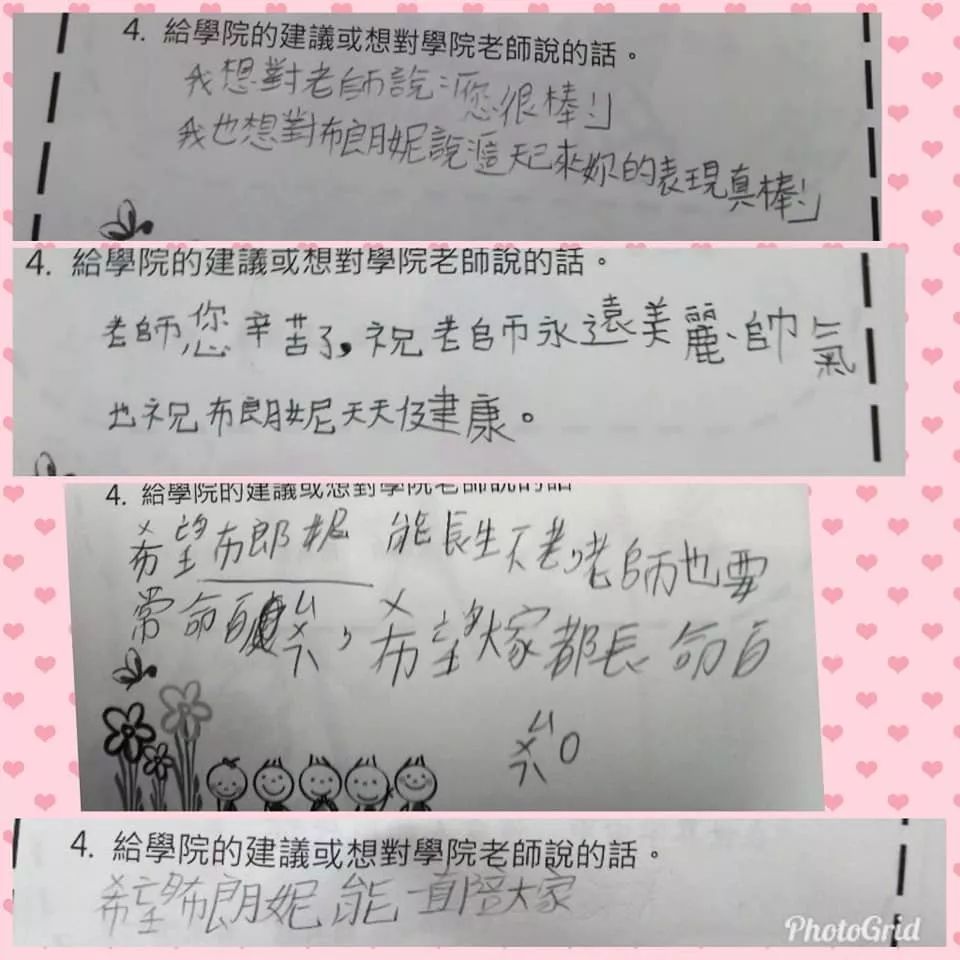 4. 給學院的建議或想對學院老師說的話。
我想對老師說:「您很棒!」
我也想對布朗妮說:「這天起來妳的表現真棒!」
4. 給學院的建議或想對學院老師說的話。
老師您辛苦了,祝老師永遠美麗、帥氣
也祝布朗妮天天健康。
4. 給學院的建議或想對學院老師說的話
希望布郎妮 能長生不老,老師也要
常命百ㄙㄨㄟ,希望大家都長命百
ㄙㄨㄟ。
4. 給學院的建議或想對學院老師說的話。
希望布朗妮能一直陪大家
PhotoGrid